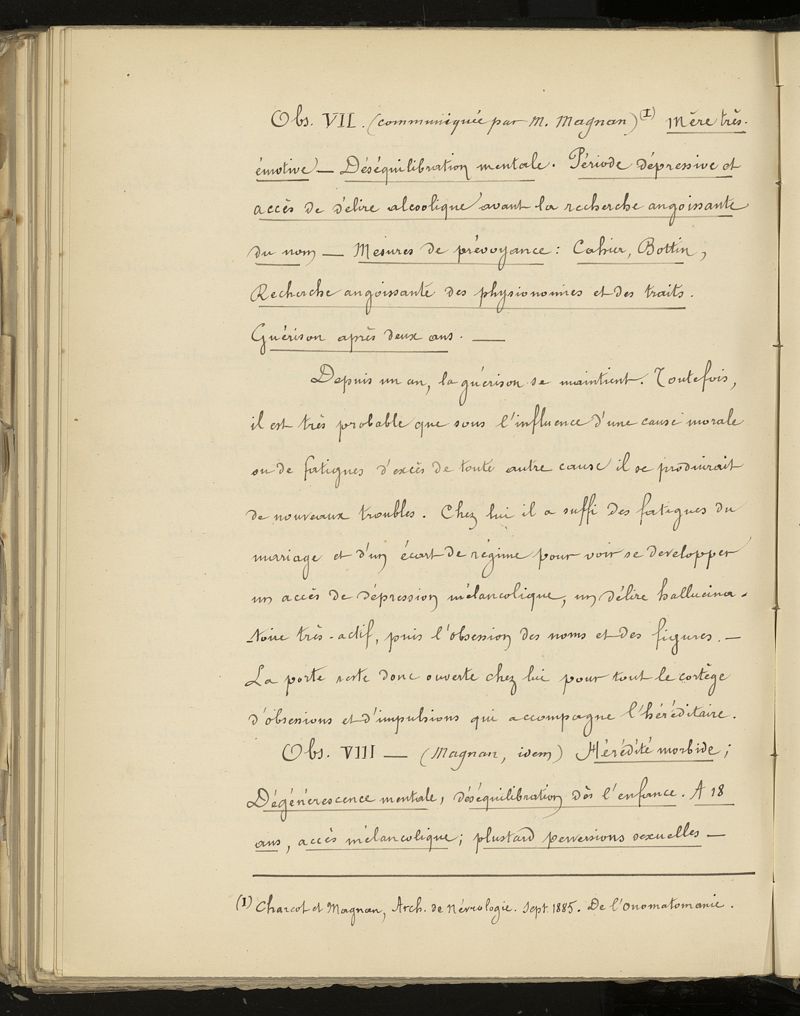 Obs. VII. (communiquée par M. Magnan) (1) Mère très-
émotive — Déséquilibration mentale. Période dépressive et
accès de délire alcoolique avant la recherche angoissante
du nom — Mesures de prévoyance : Cahier, Bottin,
Recherche angoissante des physionomies et des traits.
Guérison après deux ans. —
Depuis un an, la guérison se maintient. Toutefois,
il est très probable que sous l'influence d'une cause morale
ou de fatigues d'excès de toute autre cause il se produirait
de nouveaux troubles. Chez lui il a suffi des fatigues du
mariage et d'un écart de régime pour voir se developper
un accès de dépression mélancolique, un délire hallucina-
toire très-actif, puis l'obsession des noms et des figures. —
La porte reste donc ouverte chez lui pour tout le cortège
d'obsessions et d'impulsions qui accompagne l'héréditaire.
Obs. VIII — (Magnan, idem) Hérédité morbide ;
Dégénérescence mentale, déséquilibration dès l'enfance. A 18
ans, accès mélancolique ; plustard perversions sexuelles —
(1) Charcot et Magnan, Arch. de Névrologie. Sept. 1885. De l'Onomatomanie.